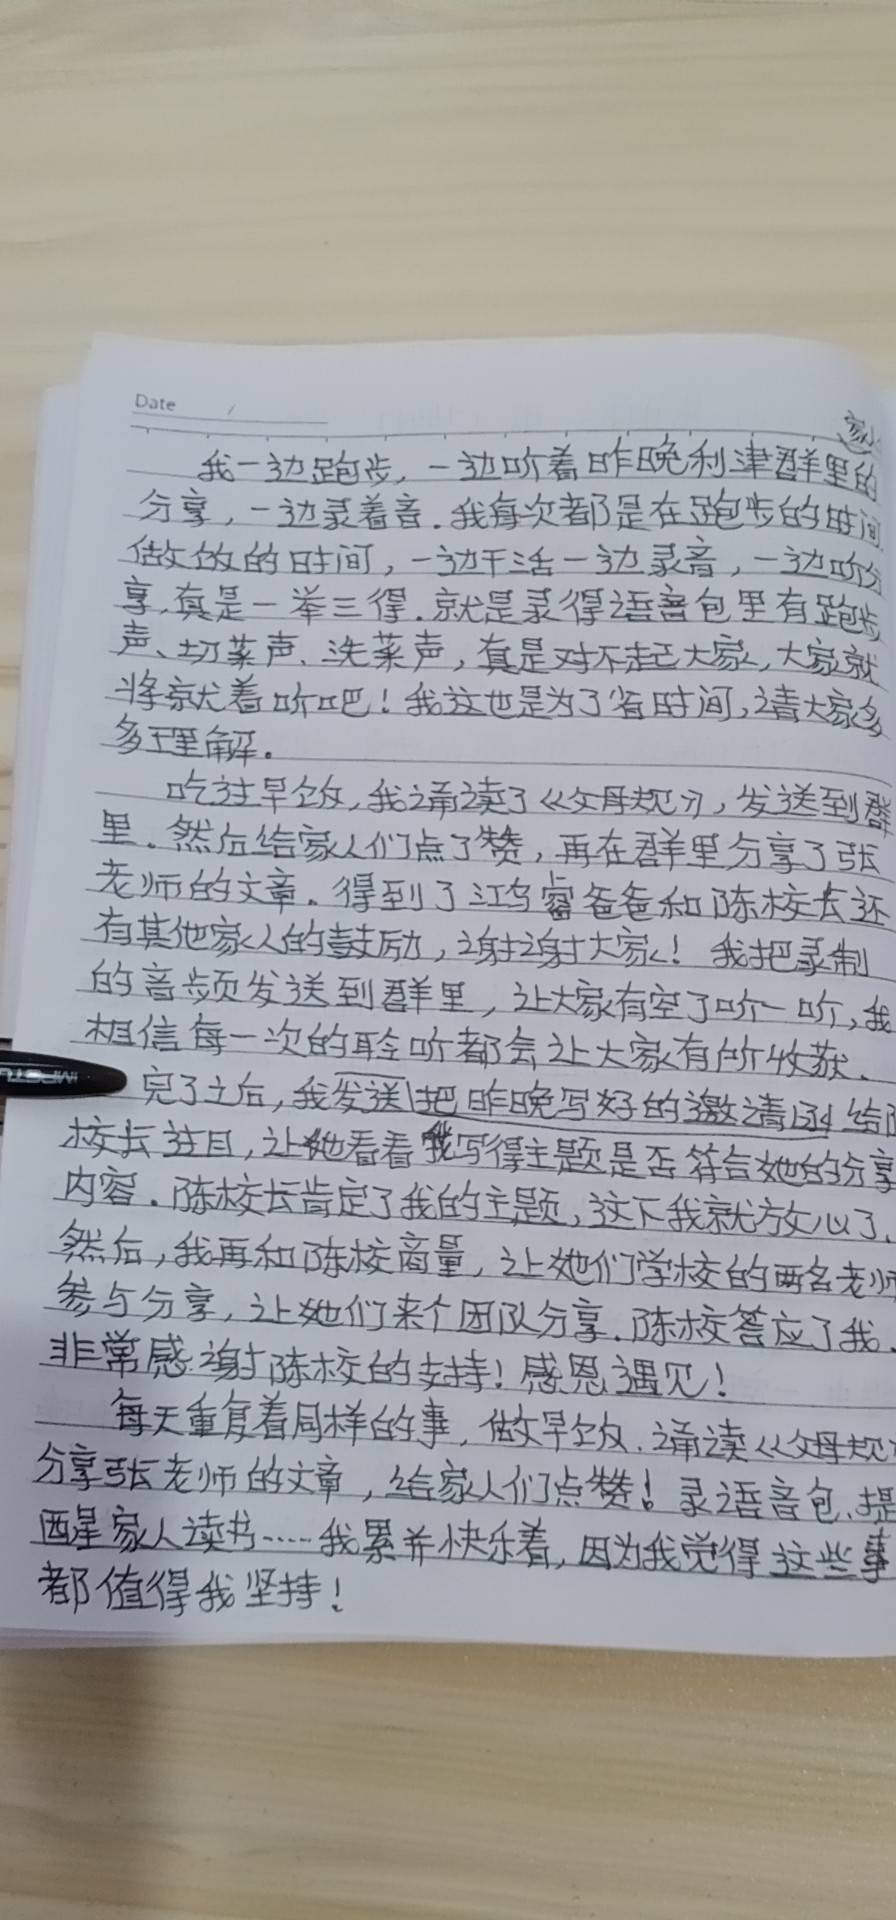 Date /
家人
我一边跑步，一边听着昨晚利津群里的
分享，一边录着音．我每次都是在跑步的时间
做饭的时间，一边干活一边录音，一边听分
享，真是一举三得．就是录得语音包里有跑步
声、切菜声、洗菜声，真是对不起大家，大家就
将就着听吧！我这也是为了省时间，请大家多
多理解。
吃过早饭，我诵读了《父母规》，发送到群
里．然后给家人们点了赞，再在群里分享了张
老师的文章。得到了江睿爸爸和陈校长还
有其他家人的鼓励，谢谢大家！我把录制
的音频发送到群里，让大家有空了听一听，我
相信每一次的聆听都会让大家有所收获．
完了之后，我发送把昨晚写好的邀请函给陈
校长过目，让她看看我写得主题是否符合她的分享
内容．陈校长肯定了我的主题，这下我就放心了．
然后，我再和陈校商量，让她们学校的两名老师
参与分享，让她们来个团队分享．陈校答应了我．
非常感谢陈校的支持！感恩遇见！
每天重复着同样的事，做早饭．诵读《父母规》
分享张老师的文章，给家人们点赞！录语音包．提
醒星家人读书……我累并快乐着，因为我觉得这些事
都值得我坚持！